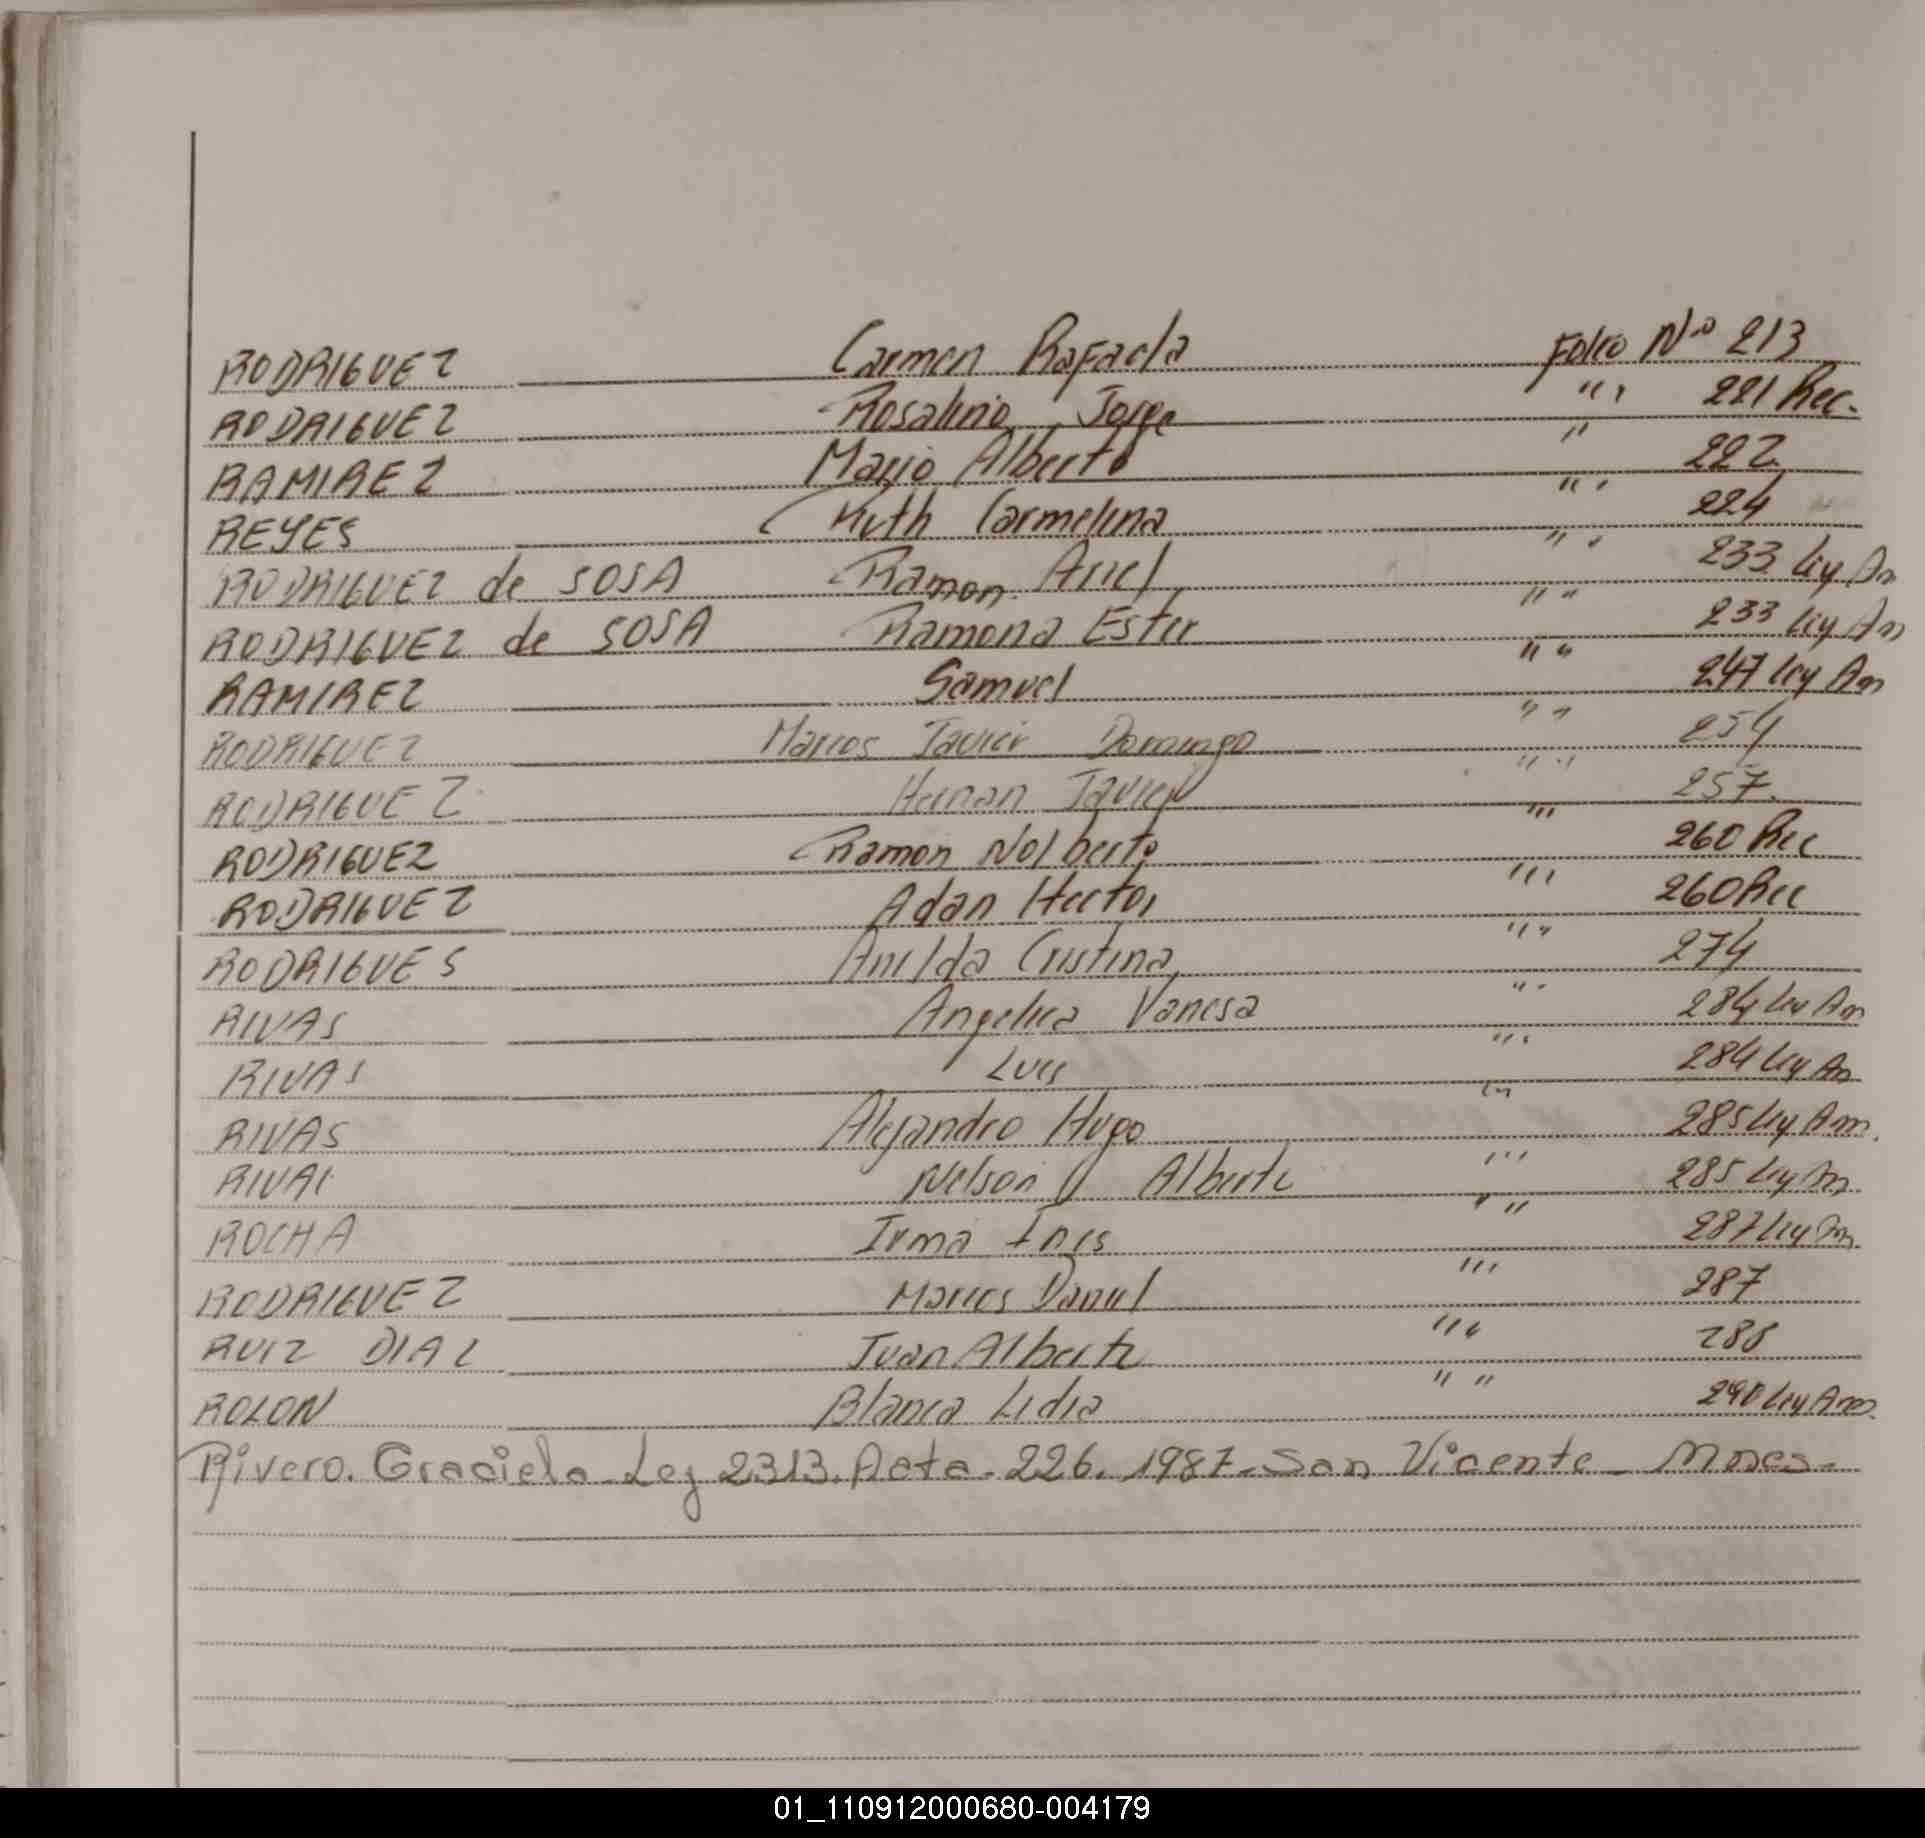 RODRIGUEZ Carmen Rafaela Folio Nº 213
RODRIGUEZ Rosalino Jorge " " 221 Rec.
RAMIREZ Mario Alberto " 222
REYES Ruth Carmelina " " 224
RODRIGUEZ de SOSA Ramon Ariel " " 233 ley An
RODRIGUEZ de SOSA Ramona Ester " " 233 ley An
RAMIREZ Samuel " " 247 ley An
RODRIGUEZ Marcos Javier Domingo " " 254
RODRIGUEZ Hernan Javier " " 257
RODRIGUEZ Ramon Nolberto " 260 Rec
RODRIGUEZ Adan Hector " 260 Rec
RODRIGUES Anilda Cristina " " 274
RIVAS Angelica Vanesa " " 284 ley An
RIVAS Luis " 284 ley An
RIVAS Alejandro Hugo " 285 ley Am.
RIVAS Nelson Alberto " 285 ley An
ROCHA Irma Ines " " 287 ley Am
RODRIGUEZ Marcos Daniel " 287
RUIZ DIAZ Juan Alberto " 288
ROLON Blanca Lidia " " 290 ley Am.
Rivero. Graciela Ley 2313. Acta. 226. 1987. San Vicente - Mnes.
01_110912000680-004179